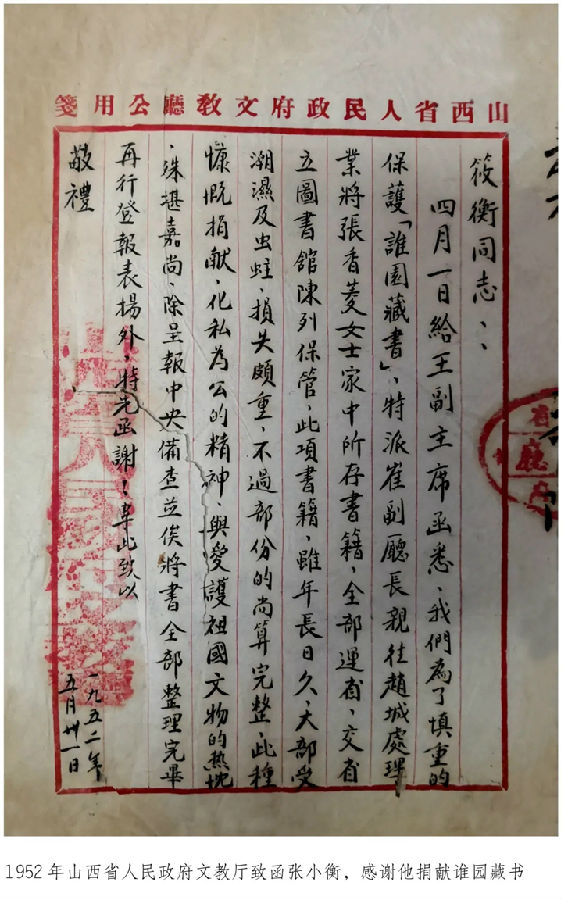 山西省人民政府文教廳公用箋
筱衡同志、：
四月一日給王副主席函悉、我們為了慎重的
保護「誰園藏書」、特派崔副廳長親往趙城處理
業將張香菱女士家中所存書籍，全部運省，交省
立圖書館陳列保管，此項書籍，雖年長日久，大部受
潮濕及虫蛀，損失頗重，不過部份的尚算完整，此種
慷慨捐献，化私為公的精神，與愛護祖國文物的熱忱
，殊堪嘉尚，除呈報中央備查並俟將書全部整理完畢
再行登報表揚外，特先函謝！專此致以
敬禮
一九五二年
五月卅一日
1952年山西省人民政府文教厅致函张小衡，感谢他捐献谁园藏书